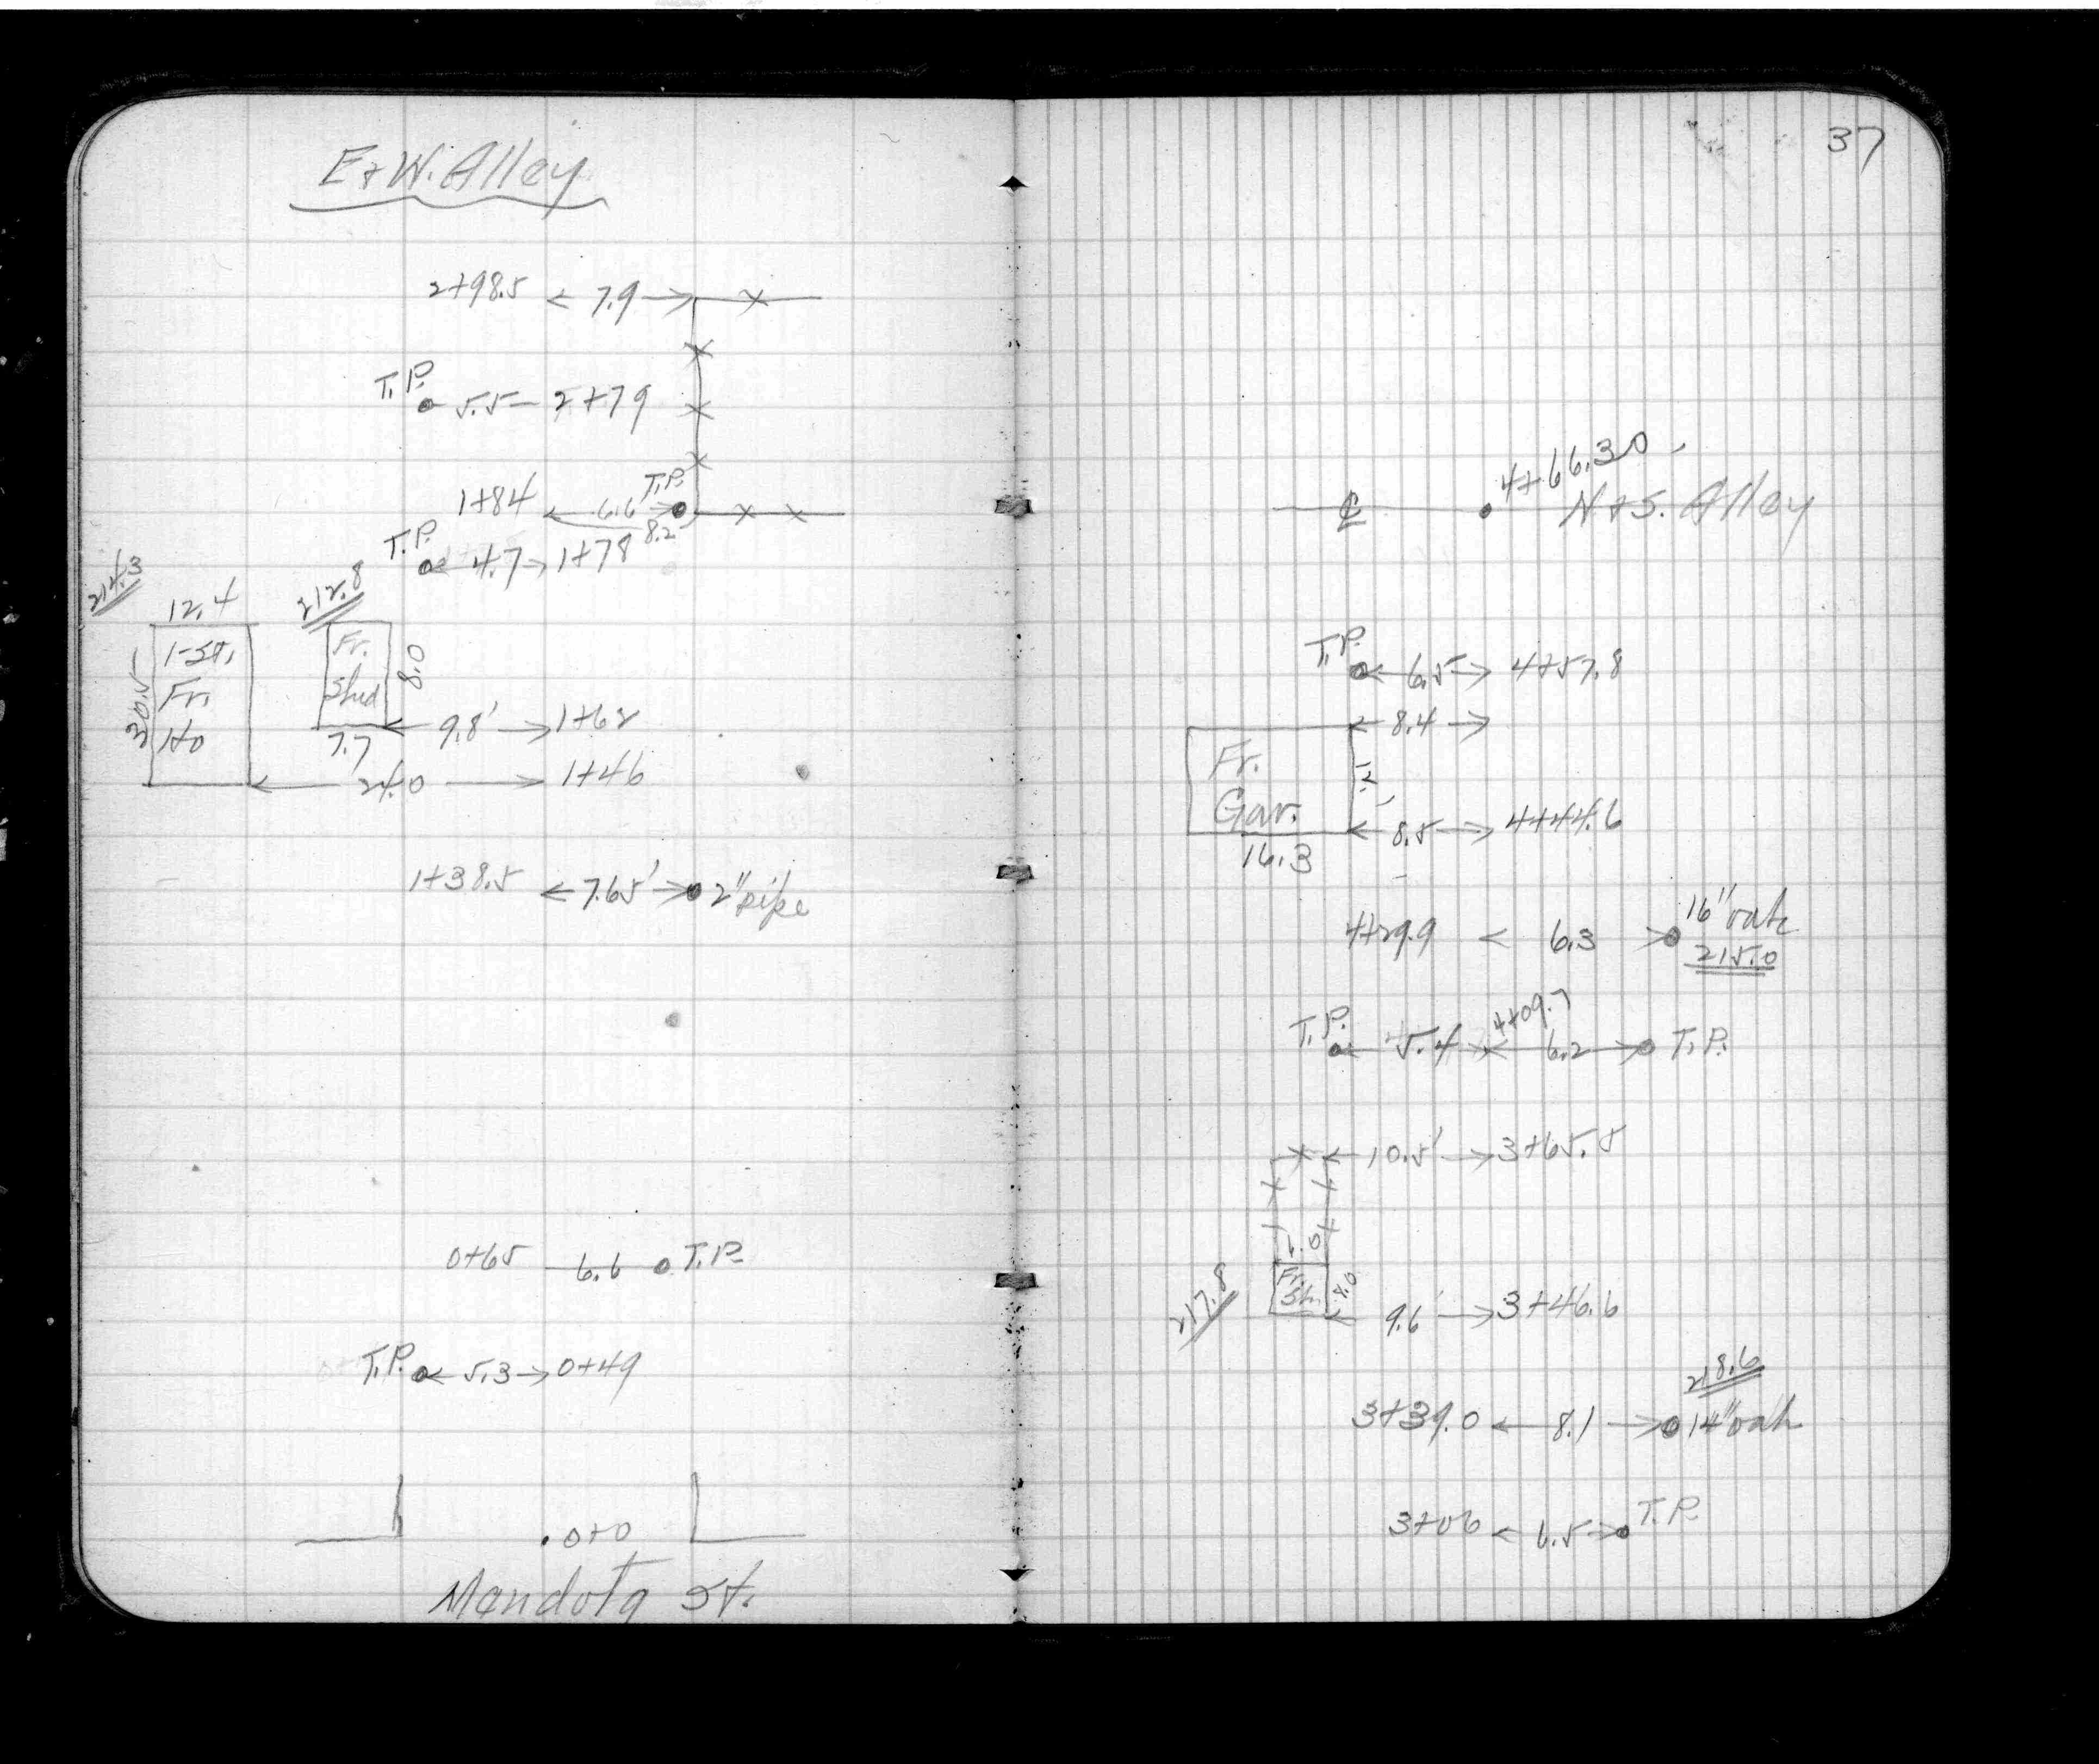 E+W. Alley
2+98.5 7.9
T.P.
5.5 2+79
T.P.
1+84 6.6
8.2
T.P.
4.7 1+78
214.3
212.8
12.4
30.5
1-St.
Fr.
Ho
Fr.
Shed
8.0
7.7
9.8' 1+62
24.0 1+46
1+38.5 7.65' 2" pipe
0+65 6.6 T.P.
T.P. 5.3 0+49
0+0
Mandota St.
37
4+66.30
℄ N+S. Alley
T.P.
6.5 4+57.8
8.4
Fr.
Gar.
12.1
8.5 4+44.6
16.3
16" oak
4+29.9 6.3
215.0
4+09.7
T.P.
5.4 6.2 T.P.
10.5' 3+65.5
6.0
Fr.
Sh.
8.0
217.8
9.6' 3+46.6
218.6
3+39.0 8.1 14" oak
3+06 6.5 T.P.